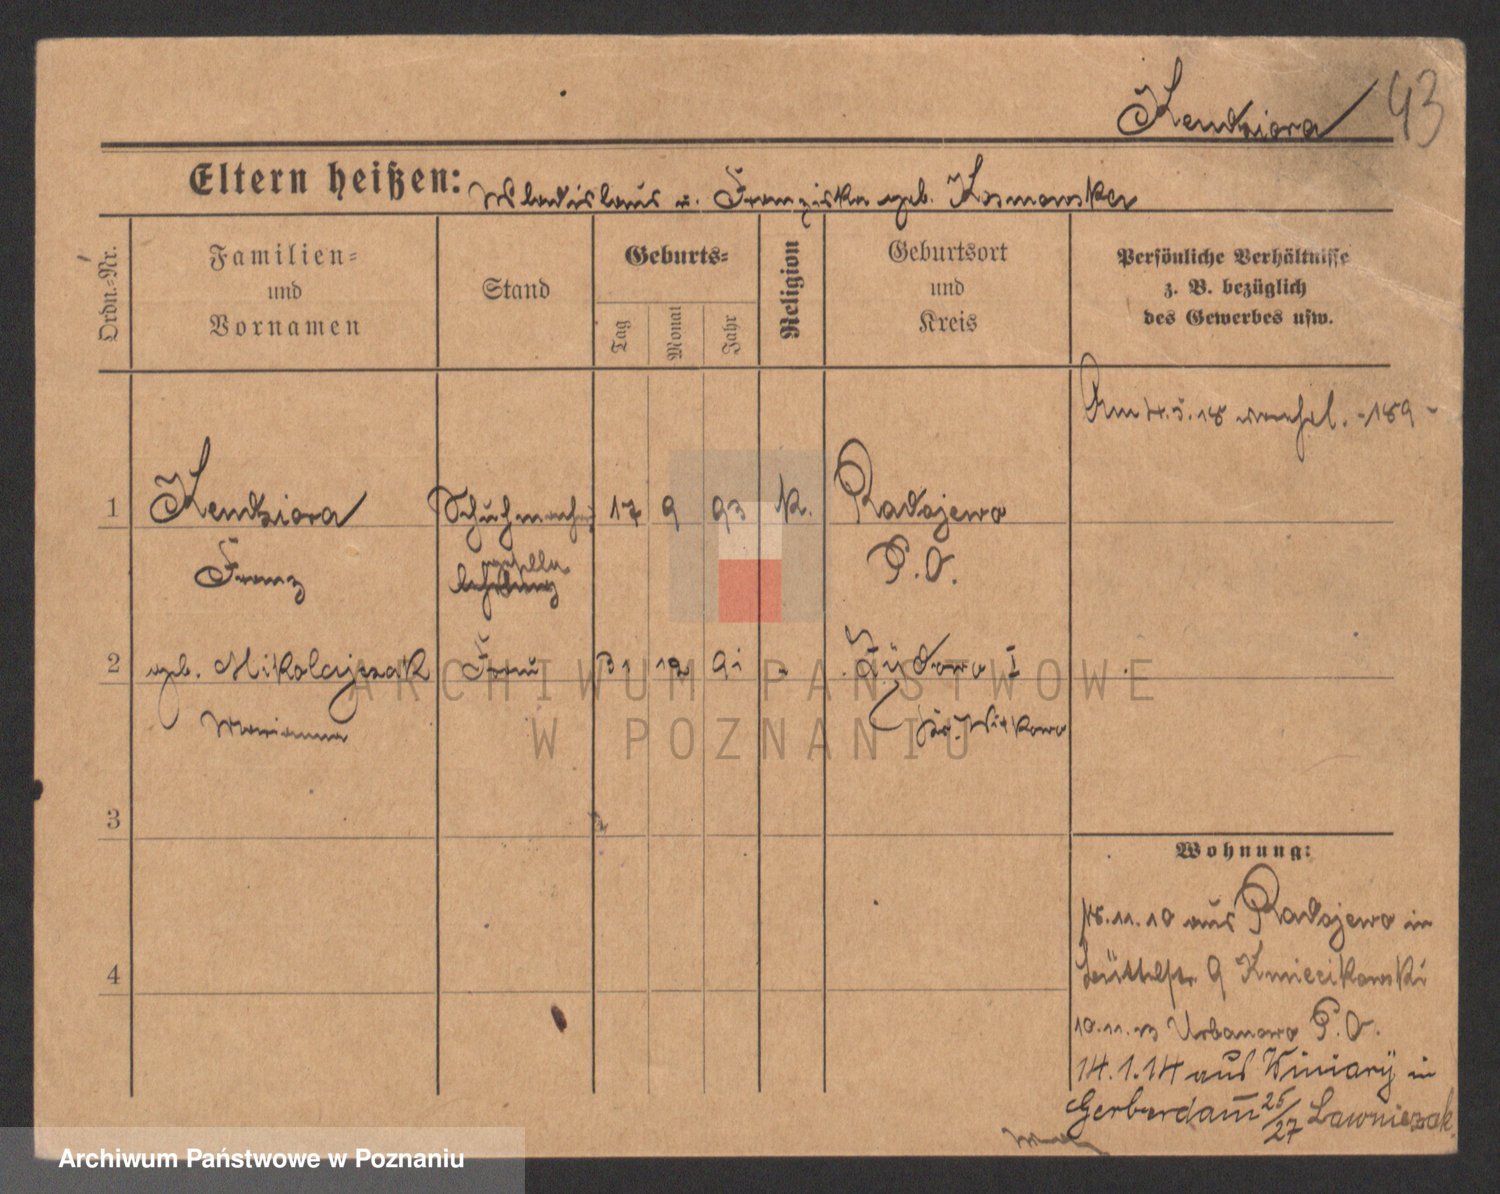 Kendziora 43
Eltern heißen: Wladislaus u. Franziska geb. Kosmowska
Ordn.-Nr.
Familien-
und
Vornamen
Stand
Geburts-
Tag
Monat
Jahr
Religion
Geburtsort
und
Kreis
Persönliche Verhältnisse
z. B. bezüglich
des Gewerbes usw.
Am 4.5.18 -189-
1 Kendziora Schuhmacher 17 9 93 k. Radojewo
Franz geselle P.O.
lehrling
2 geb. Mikolajczak Frau 31 12 91 " Żydowo I
Marianna Kr. Witkowo
3
4
Wohnung:
18.11.10 aus Radojewo in
9 Kmiecikowski
10.11.13 Urbanowo P.O.
14.1.14 aus Winiary in
Gerberdam 26/27 Lawniczak
ARCHIWUM PAŃSTWOWE
W POZNANIU
Archiwum Państwowe w Poznaniu